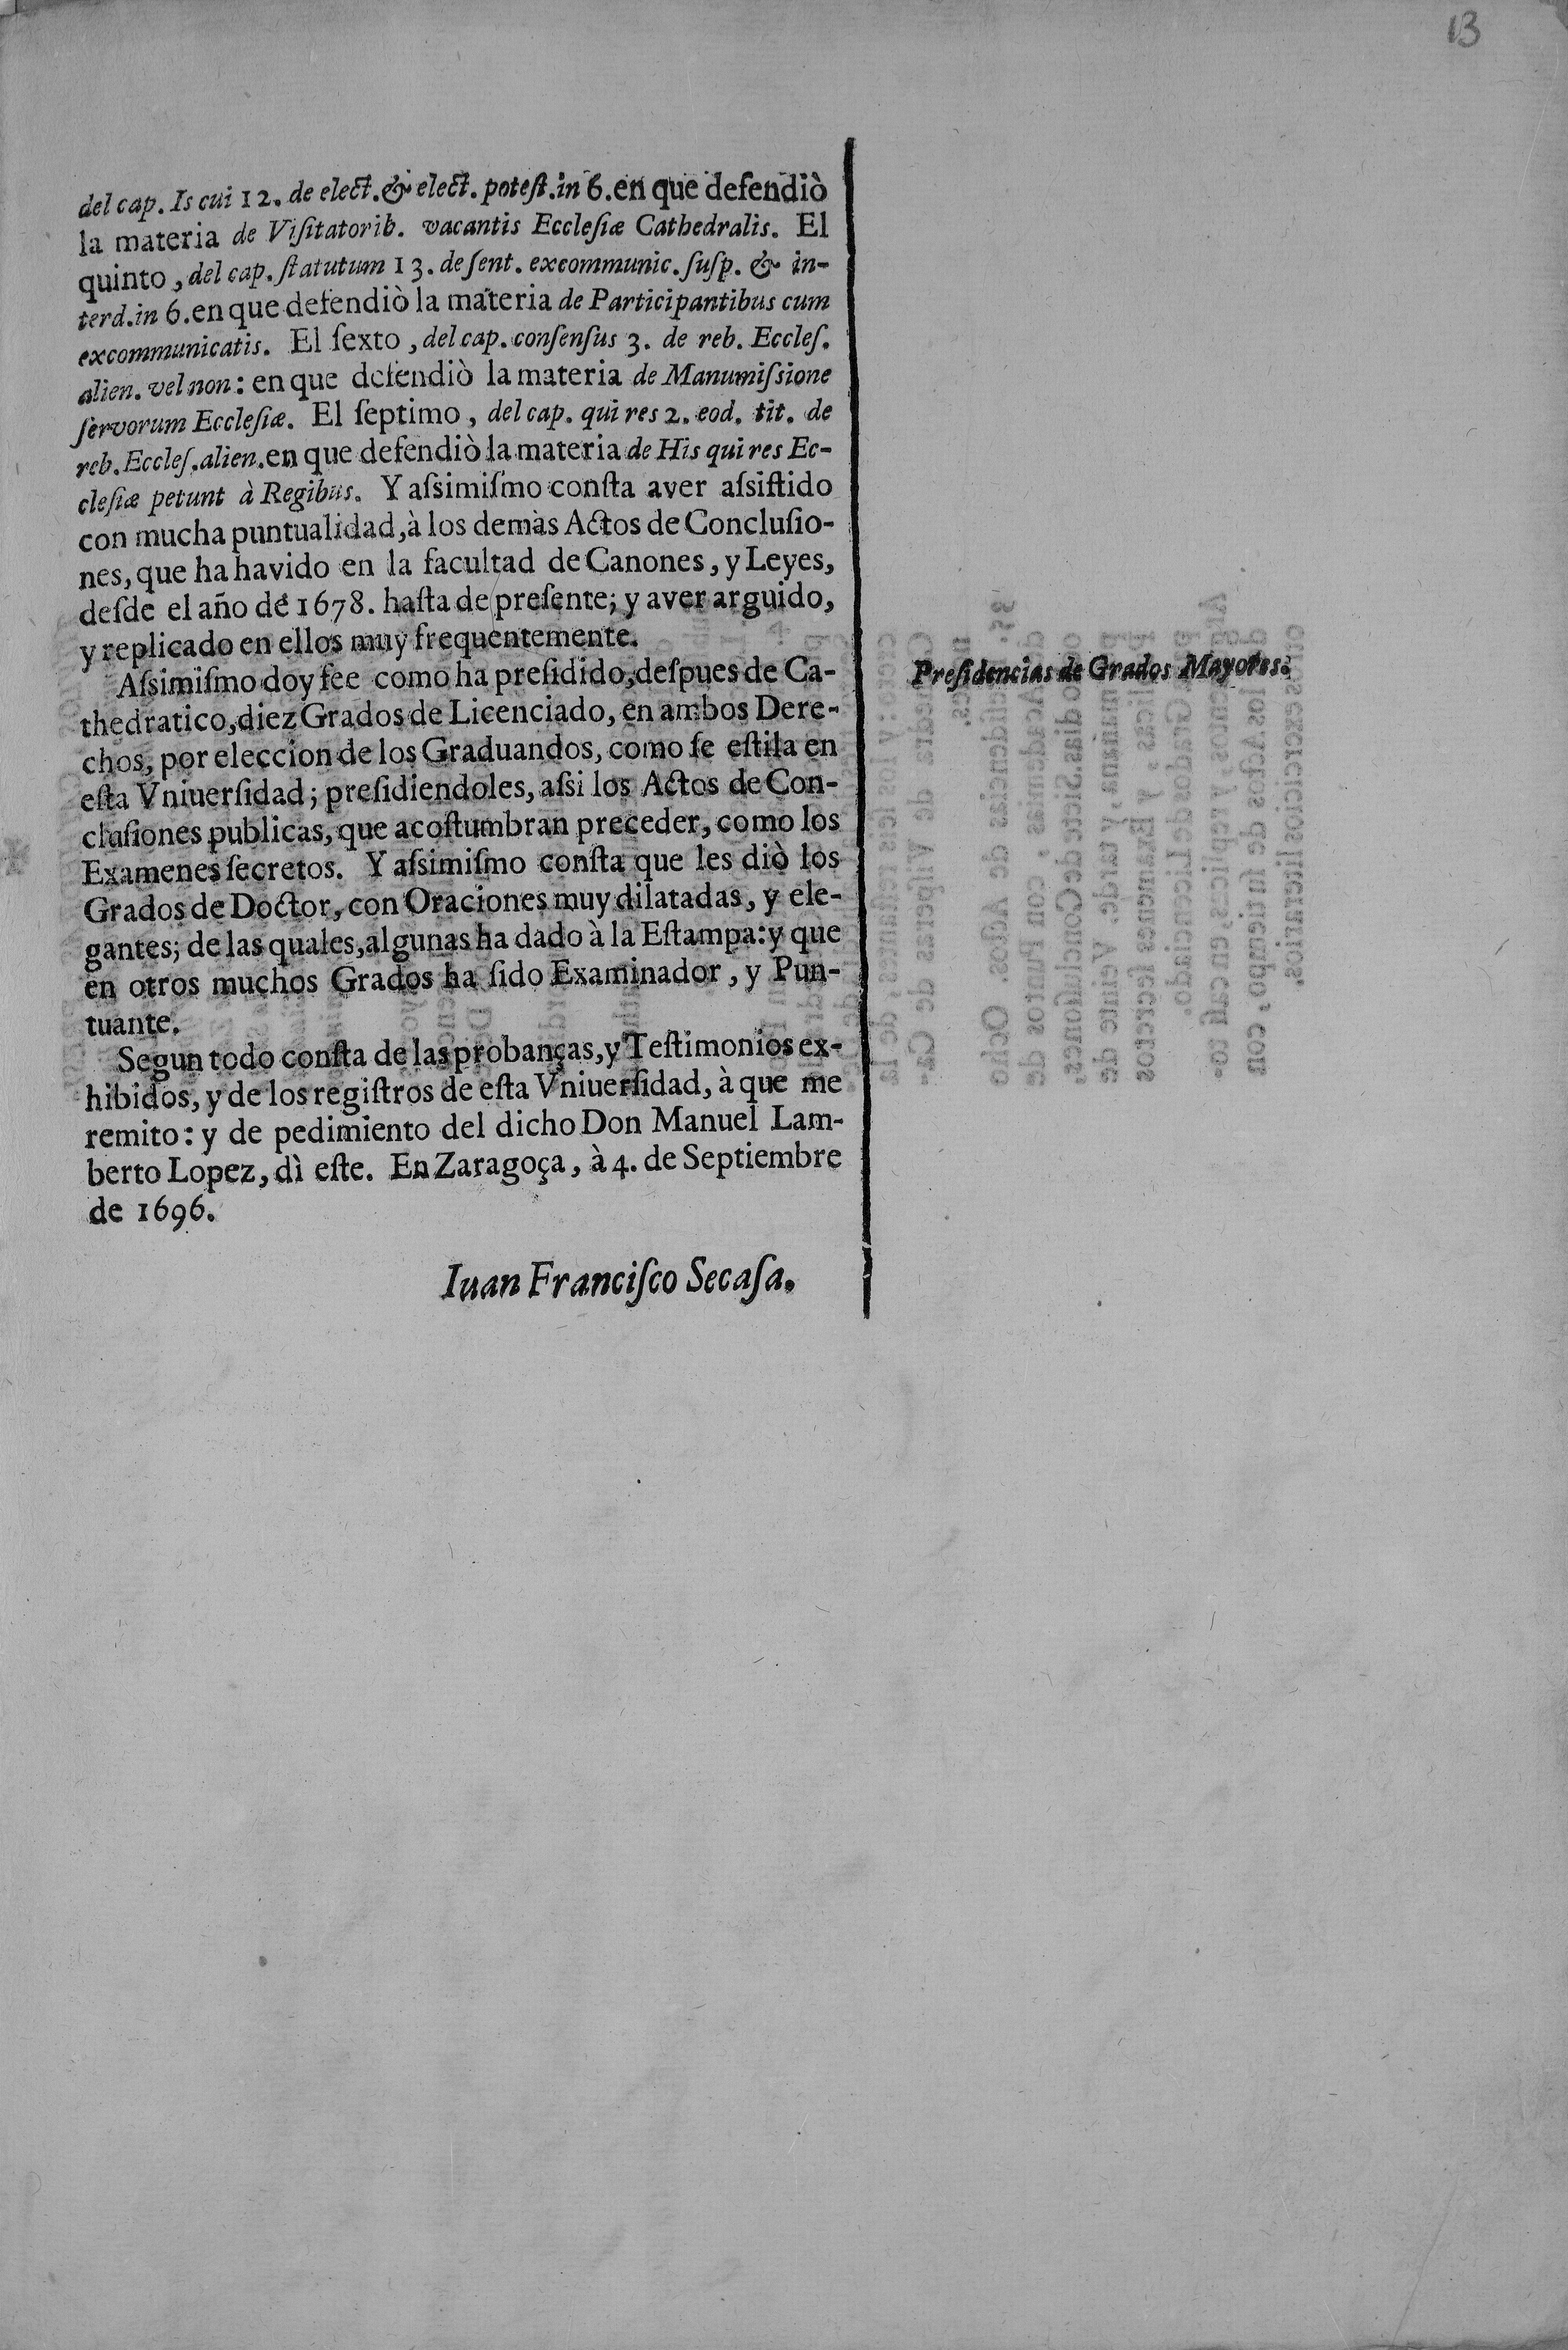 13
del cap. Is cui 12. de elect. & elect. poteſt. in 6. en que defendiò
la materia de Viſitatorib. vacantis Eccleſiæ Cathedralis. El
quinto, del cap. ſtatutum 13. de ſent. excommunic. ſuſp. & in-
terd. in 6. en que defendiò la materia de Participantibus cum
excommunicatis. El ſexto, del cap. conſenſus 3. de reb. Eccleſ.
alien. vel non: en que defendiò la materia de Manumiſsione
ſervorum Eccleſiæ. El ſeptimo, del cap. qui res 2. eod. tit. de
reb. Eccleſ. alien. en que defendiò la materia de His qui res Ec-
cleſiæ petunt à Regibus. Y aſsimiſmo conſta aver aſsiſtido
con mucha puntualidad, à los demàs Actos de Concluſio-
nes, que ha havido en la facultad de Canones, y Leyes,
deſde el año de 1678. haſta de preſente; y aver arguido,
y replicado en ellos muy frequentemente.
Aſsimiſmo doy fee como ha preſidido, deſpues de Ca-
thedratico, diez Grados de Licenciado, en ambos Dere-
chos, por eleccion de los Graduandos, como ſe eſtila en
eſta Vniuerſidad; preſidiendoles, aſsi los Actos de Con-
cluſiones publicas, que acoſtumbran preceder, como los
Examenes ſecretos. Y aſsimiſmo conſta que les diò los
Grados de Doctor, con Oraciones muy dilatadas, y ele-
gantes; de las quales, algunas ha dado à la Eſtampa: y que
en otros muchos Grados ha ſido Examinador, y Pun-
tuante.
Segun todo conſta de las probanças, y Teſtimonios ex-
hibidos, y de los regiſtros de eſta Vniuerſidad, à que me
remito: y de pedimiento del dicho Don Manuel Lam-
berto Lopez, dì eſte. En Zaragoça, à 4. de Septiembre
de 1696.
Iuan Franciſco Secaſa.
Preſidencias de Grados Mayores.